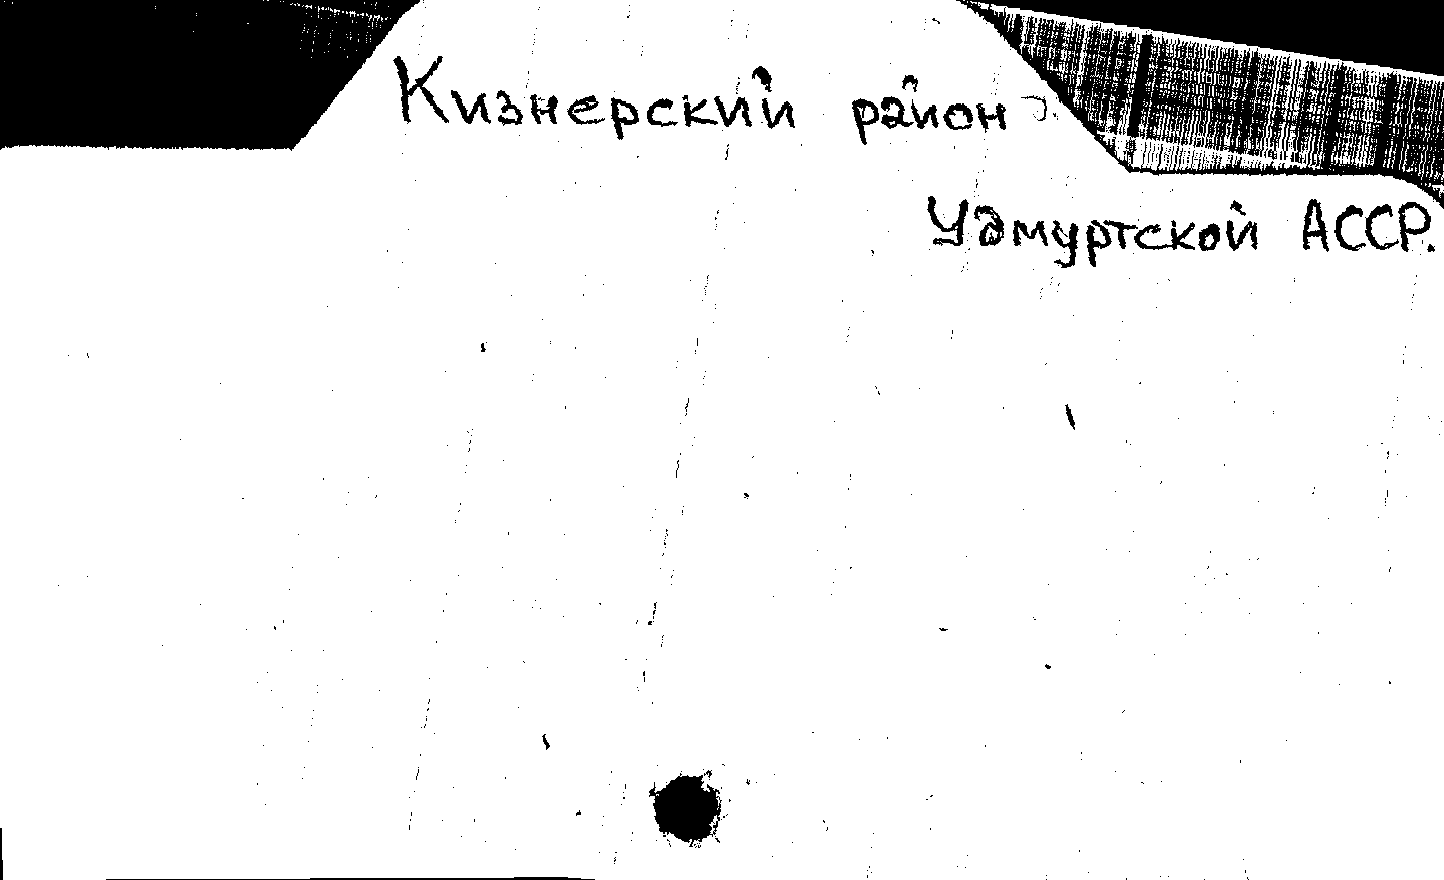 Кизнерский район
Удмуртской АССР.